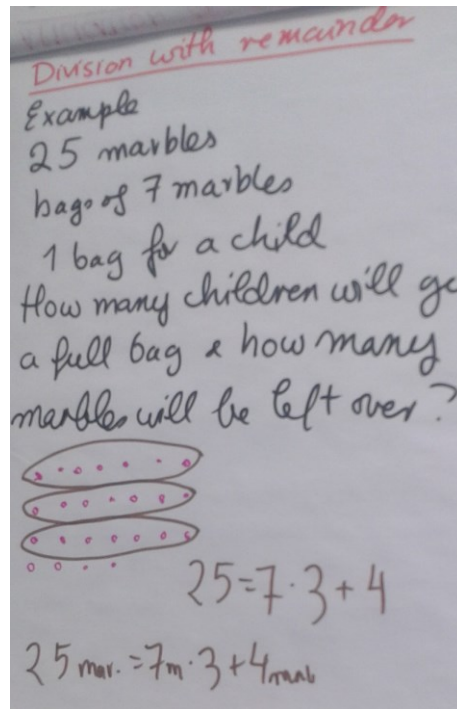 Division with remainder
Example
25 marbles
bags of 7 marbles
1 bag for a child
How many children will ge
a full bag & how many
marbles will be left over?
25=7·3+4
25 mar.=7m·3+4marb